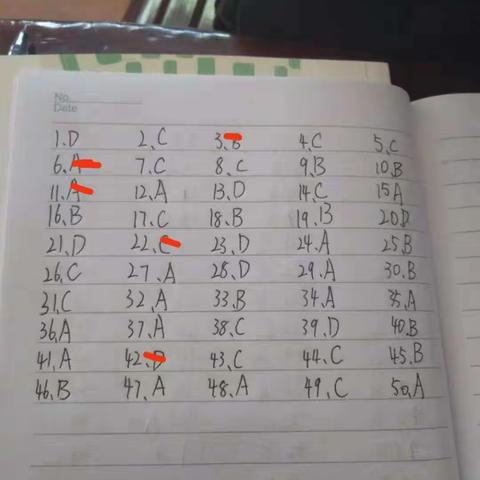 No.
Date
1.D 2.C 3. 4.C 5.C
6. 7.C 8.C 9.B 10.B
11. 12.A 13.D 14.C 15A
16.B 17.C 18.B 19.B 20.D
21.D 22. 23.D 24.A 25.B
26.C 27.A 28.D 29.A 30.B
31.C 32.A 33.B 34.A 35.A
36.A 37.A 38.C 39.D 40.B
41.A 42. 43.C 44.C 45.B
46.B 47.A 48.A 49.C 50.A